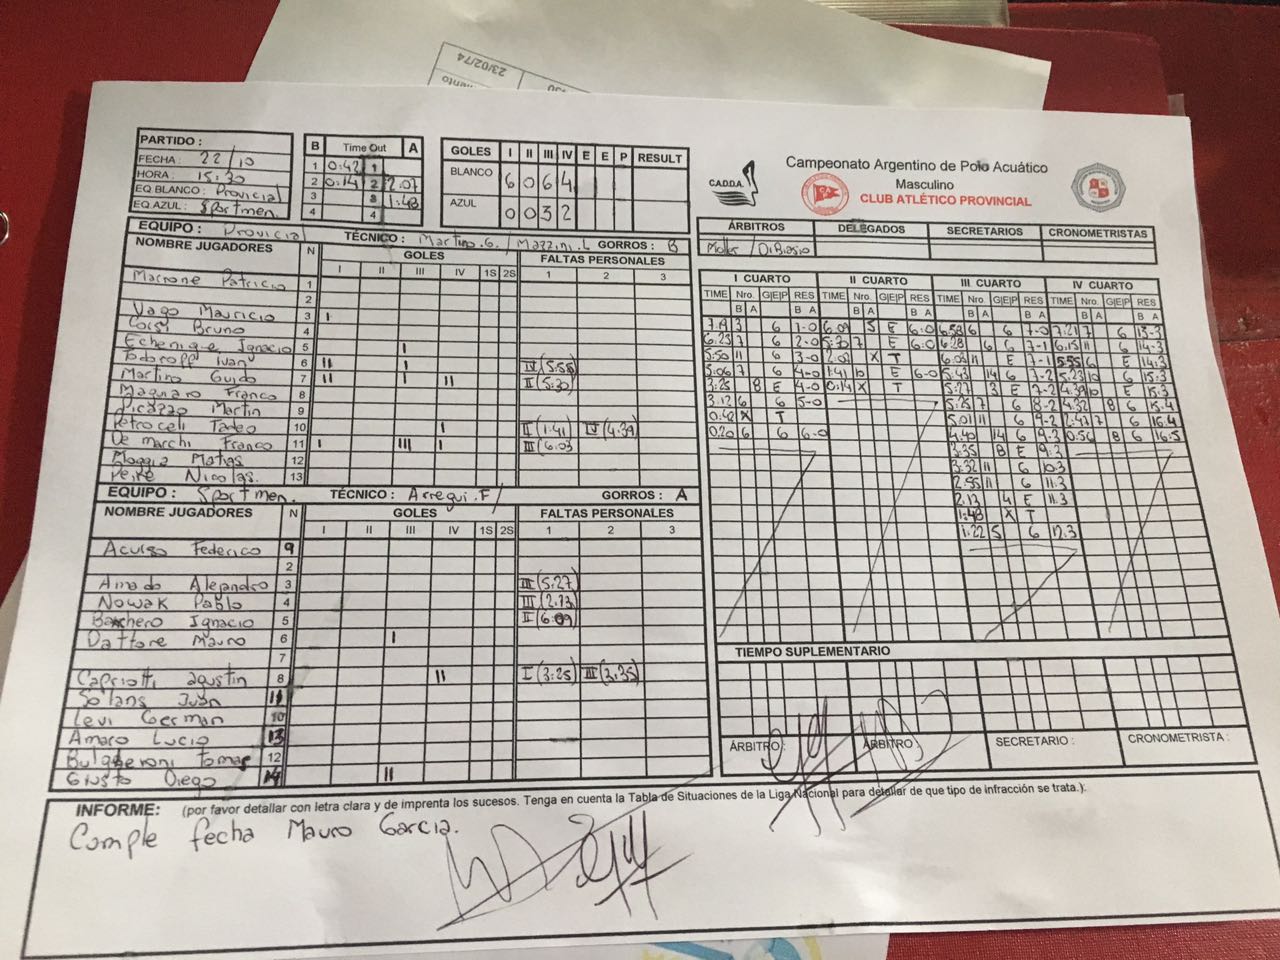 23/02/74
PARTIDO :
FECHA : 22/10
HORA : 15:30
EQ BLANCO : Provincial
EQ AZUL : Sportmen.
B Time Out A
1 0:42 1
2 0:14 2 2:07
3 3 1:48
4 4
GOLES I II III IV E E P RESULT
BLANCO 6 0 6 4
AZUL 0 0 3 2
C.A.D.D.A.
Campeonato Argentino de Polo Acuático
Masculino
CLUB ATLÉTICO PROVINCIAL
ÁRBITROS DELEGADOS SECRETARIOS CRONOMETRISTAS
Moller / DiBiasio
EQUIPO : Provicial TÉCNICO : Martino.G. / Mazzini.L GORROS : B
NOMBRE JUGADORES N GOLES FALTAS PERSONALES
I II III IV 1S 2S 1 2 3
Marrone Patricio 1
2
Vago Mauricio 3 I
Corsi Bruno 4
Echenique Ignacio 5 I
Todoroff Ivan 6 II I IV (5:55)
Martino Guido 7 II I II II (5:30)
Maquiaro Franco 8
Picazzo Martin 9
Petroceli Tadeo 10 I II (1:41) IV (4:39)
De marchi Franco 11 I III I III (6:03)
Moggia Matias 12
Peire Nicolas. 13
EQUIPO : Sportmen. TÉCNICO : Arregui.F/ GORROS : A
NOMBRE JUGADORES N GOLES FALTAS PERSONALES
I II III IV 1S 2S 1 2 3
Acurso Federico 9
2
Amado Alejandro 3 III (5:27)
Nowak Pablo 4 III (2:13)
Barchero Ignacio 5 II (6:09)
Dattore Mauro 6 I
7
Capriotti agustin 8 II I (3:25) III (3:35)
Solans Juan 11
Levi German 10
Amaro Lucio 13
Bulgheroni Tomas 12
Giusto Diego 14 II
I CUARTO II CUARTO III CUARTO IV CUARTO
TIME Nro. G|E|P RES TIME Nro. G|E|P RES TIME Nro. G|E|P RES TIME Nro. G|E|P RES
B A B A B A B A B A B A B A B A
3 6 1-0 6:09 5 E 6-0 6:58 6 6 7-0 7:21 7 6 13-3
6:25 7 6 2-0 5:30 7 E 6-0 6:28 6 6 7-1 6:15 11 6 14-3
5:50 11 6 3-0 2:07 X T 6:03 11 E 7-1 5:55 6 E 14-3
5:06 7 6 4-0 1:41 10 E 6-0 5:43 14 6 7-2 5:23 10 6 15-3
3:25 8 E 4-0 0:14 X T 5:27 3 E 7-2 4:39 10 E 15-3
3:12 6 6 5-0 5:25 7 6 8-2 4:32 8 6 15-4
0:42 X T 5:01 11 6 9-2 2:47 7 6 16-4
0:20 6 6 6-0 4:40 14 6 9-3 0:56 8 6 16-5
3:35 8 E 9-3
3:32 11 6 10-3
2:55 11 6 11-3
2:13 4 E 11-3
1:48 X T
1:22 5 6 12-3
TIEMPO SUPLEMENTARIO
ÁRBITRO : ÁRBITRO : SECRETARIO : CRONOMETRISTA :
INFORME: (por favor detallar con letra clara y de imprenta los sucesos. Tenga en cuenta la Tabla de Situaciones de la Liga Nacional para detallar de que tipo de infracción se trata.).
Comple fecha Mauro Garcia.